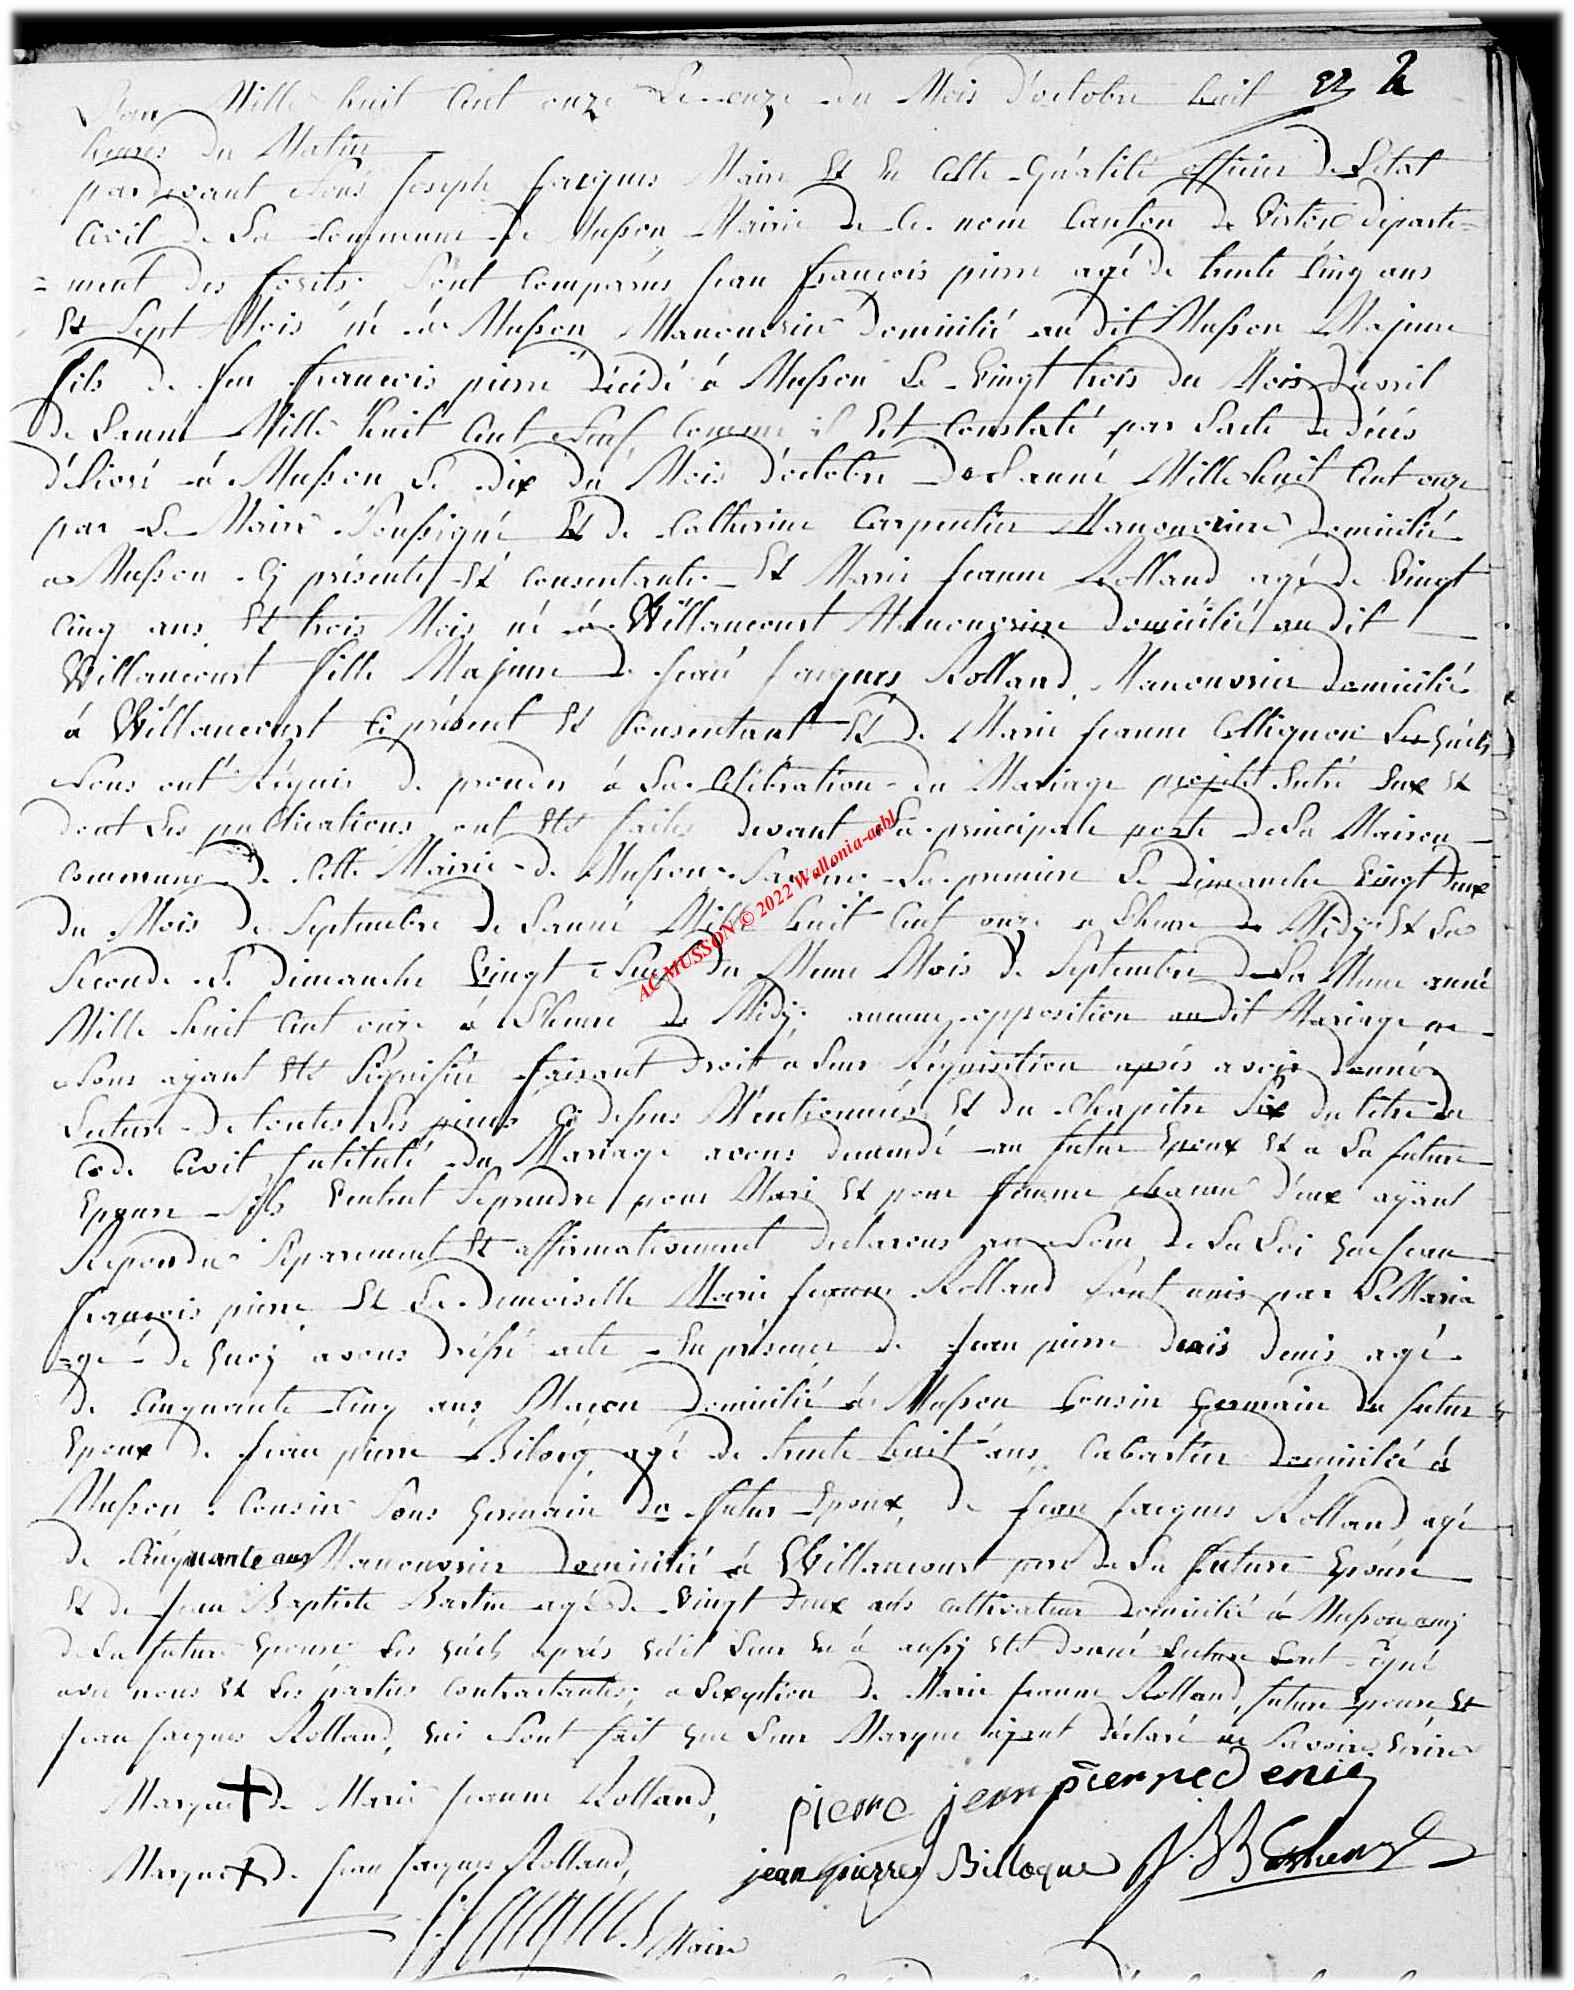 L'an Mille huit Cent onze Le onze du Mois D'octobre huit 22 2
heures du Matin
pardevant Nous Joseph Jacques Maire Et En Cette Qualité officier De L'état
Civil De La Commune De Musson Mairie de Ce nom Canton de Virton Départe=
=ment des forêts. Sont Comparus Jean françois pierre agé De trente Cinq ans
Et Sept Mois né à Musson Manouvrier Domicilié au Dit Musson Majeure
fils de feu françois pierre Décédé à Musson Le Vingt trois du Mois D'avril
De L'année Mille huit Cent Neuf Comme il Est Constaté par L'acte de décès
Délivré à Musson Le dix du Mois D'octobre De L'année Mille huit Cent onze
par Le Maire Soussigné Et De Catherine Carpentier Manouvrière Domicilié
a Musson Cy présente Et Consentante Et Marie Jeanne Rolland agé De Vingt
Cinq ans Et trois Mois né à Willancourt Manouvrière Domicilié audit
Willancourt fille Majeure De Jean Jacques Rolland, Manouvrier Domicilié
à Willancourt Ci présent Et Consentant Et De Marie Jeanne Collignon Les quels
Nous ont Réquis De proceder à La Célébration du Mariage projeté Entre Eux Et
dont Les publications ont Eté faites devant La principale porte De La Maison
Commune De Cette Mairie De Musson Savoir La premiere Le Dimanche Vingt Deux
Du Mois De Septembre De L'année Mille huit Cent onze a L'heure De Midy Et La
Seconde Le Dimanche Vingt Neuf Du Meme Mois De Septembre De La Meme année
Mille huit Cent onze à L'heure De Midy. aucune opposition audit Mariage ne
Nous ayant Eté Signifiée faisant Droit a Leur Réquisition après avoir donnée
Lecture De toutes Les pieces Ci dessus Mentionnées Et du Chapitre Six du titre du
Code Civil Intitulé du Mariage avons demandé au futur Epoux Et a La future
Epouse S'ils Veulent Se prendre pour Mari Et pour femme chacun D'eux ayant
Répondu Séparément Et affirmativement declarons au Nom De La Loi que Jean
françois pierre Et La Demoiselle Marie Jeanne Rolland Sont unis par Le Maria
=gé De quoy avons dréssé acte En présence De Jean pierre denis denis agé
De Cinquante Cinq ans Maçon Domicilié à Musson Cousin Germain Du futur
Epoux De Jean pierre Bilocq agé De trente huit ans Cabartier Domicilié à
Musson Cousin Sous Germain Du futur Epoux, De Jean Jacques Rolland agé
De Cinquante ans Manouvrier Domicilié à Willancourt pere De La future Epouse
Et De Jean Baptiste Bastin agé De Vingt Deux ans Cultivateur Domicilié à Musson amy
De La future Epouse Les quels après qu'il Leur En à aussy Eté donné Lecture Ont Signé
avec nous Et Les parties Contractantes, a L'exception De Marie Jeanne Rolland, future Epouse Et
Jean Jacques Rolland, qui N'ont fait que Leur Marque ayant Déclaré ne Savoir Ecrire
Marque + De Marie Jeanne Rolland, pierre jean pierre Denis
Marque + De Jean Jacques Rolland, jean pierre Billoque J. B Bastien
J. Jacques Maire
AC MUSSON © 2022 Wallonia-asbl